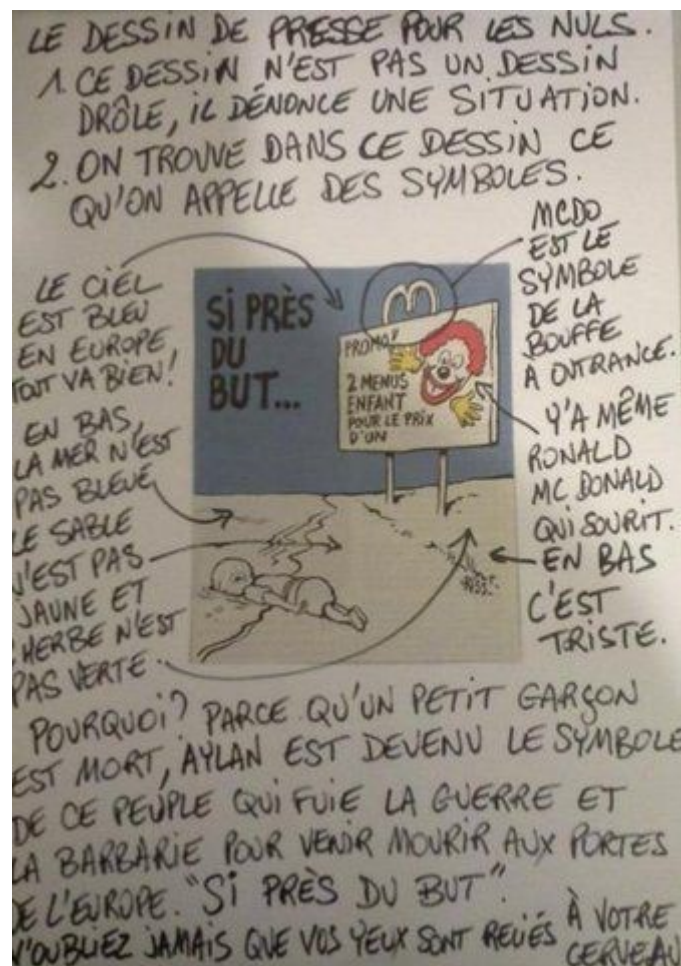 LE DESSIN DE PRESSE POUR LES NULS.
1. CE DESSIN N'EST PAS UN DESSIN
DRÔLE, IL DÉNONCE UNE SITUATION.
2. ON TROUVE DANS CE DESSIN CE
QU'ON APPELLE DES SYMBOLES.
LE CIEL
EST BLEU
EN EUROPE
TOUT VA BIEN!
EN BAS,
LA MER N'EST
PAS BLEUE
LE SABLE
N'EST PAS
JAUNE ET
L'HERBE N'EST
PAS VERTE.
SI PRÈS
DU
BUT...
PROMO!
2 MENUS
ENFANT
POUR LE PRIX
D'UN
MCDO
EST LE
SYMBOLE
DE LA
BOUFFE
À OUTRANCE.
Y'A MÊME
RONALD
MC DONALD
QUI SOURIT.
EN BAS
C'EST
TRISTE.
POURQUOI? PARCE QU'UN PETIT GARÇON
EST MORT, AYLAN EST DEVENU LE SYMBOLE
DE CE PEUPLE QUI FUIE LA GUERRE ET
LA BARBARIE POUR VENIR MOURIR AUX PORTES
DE L'EUROPE. "SI PRÈS DU BUT".
N'OUBLIEZ JAMAIS QUE VOS YEUX SONT RELIÉS À VOTRE
CERVEAU